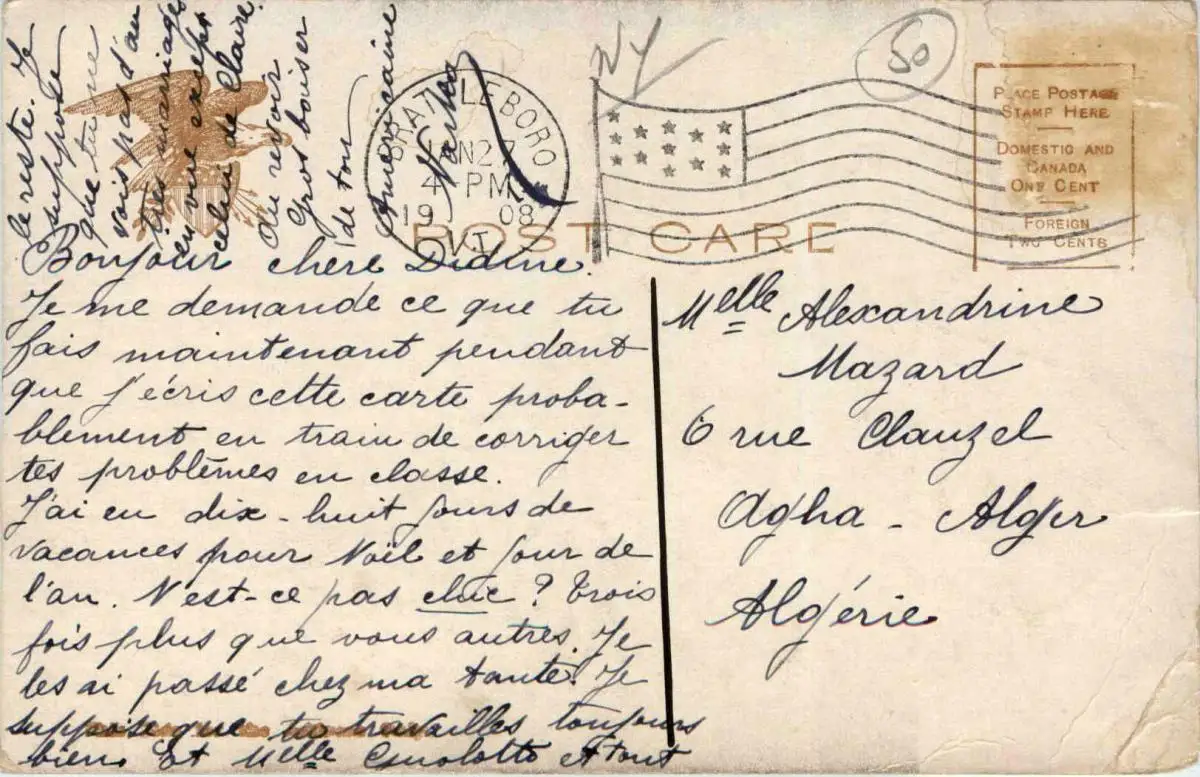 Bonjour chère Didine.
Je me demande ce que tu
fais maintenant pendant
que j'écris cette carte proba-
blement en train de corriger
tes problèmes en classe.
J'ai eu dix-huit jours de
vacances pour Noël et jour de
l'an. N'est-ce pas chic ? Trois
fois plus que vous autres. Je
les ai passé chez ma tante. Je
suppose que tu travailles toujours
bien. Et Melle et tout
le reste. Je
suppose
que tu ne
vois pas d'au
tres mariages
en vue except
celui de Claire.
Au revoir
Gros baiser
de ton
Américaine
Martho
BRATTLEBORO
JAN 27
4 PM
1908
VT.
NY
50
POST CARD
PLACE POSTAGE
STAMP HERE
DOMESTIC AND
CANADA
ONE CENT
FOREIGN
TWO CENTS
Melle Alexandrine
Mazard
6 rue Clauzel
Agha - Alger
Algérie